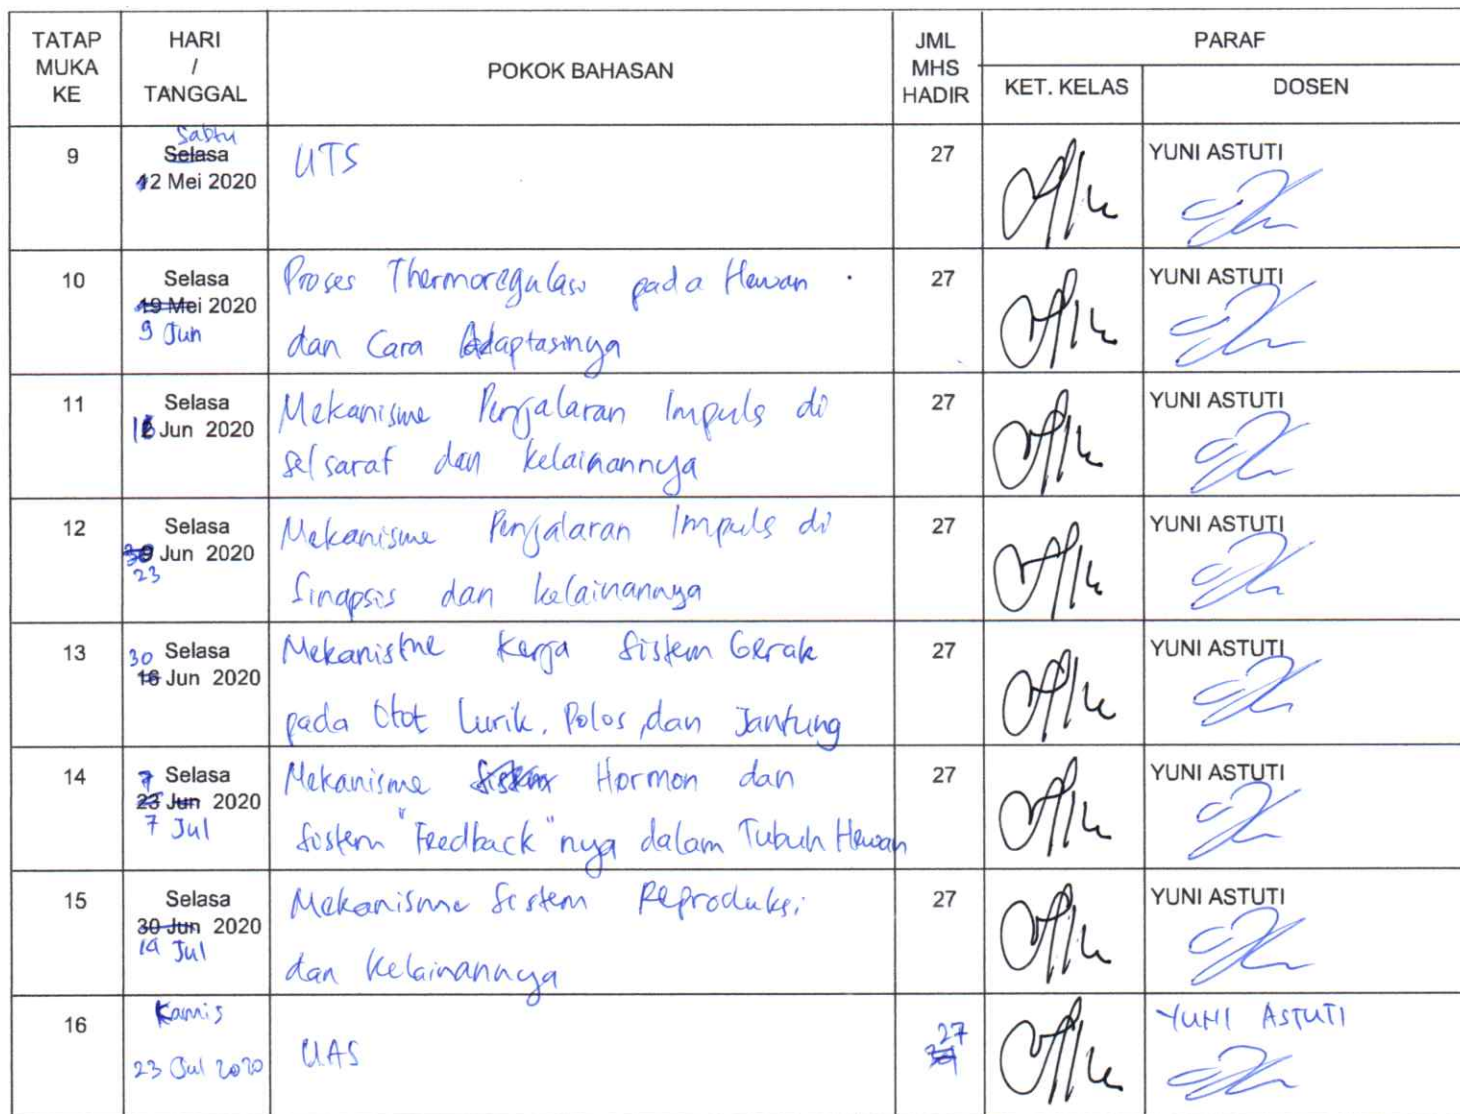 TATAP MUKA KE
HARI / TANGGAL
POKOK BAHASAN
JML MHS HADIR
PARAF
KET. KELAS
DOSEN
9
Sabtu
Selasa
12 Mei 2020
UTS
27
YUNI ASTUTI
10
Selasa
19 Mei 2020
9 Jun
Proses Thermoregulasi pada Hewan
dan Cara Adaptasinya
27
YUNI ASTUTI
11
Selasa
16 Jun 2020
Mekanisme Penjalaran Impuls di
sel saraf dan kelainannya
27
YUNI ASTUTI
12
Selasa
Jun 2020
23
Mekanisme Penjalaran Impuls di
Sinapsis dan kelainannya
27
YUNI ASTUTI
13
30 Selasa
16 Jun 2020
Mekanisme Kerja Sistem Gerak
pada Otot Lurik, Polos, dan Jantung
27
YUNI ASTUTI
14
7 Selasa
23 Jun 2020
7 Jul
Mekanisme Sistem Hormon dan
Sistem "Feedback" nya dalam Tubuh Hewan
27
YUNI ASTUTI
15
Selasa
30 Jun 2020
14 Jul
Mekanisme Sistem Reproduksi
dan Kelainannya
27
YUNI ASTUTI
16
Kamis
23 Jul 2020
UAS
27
YUNI ASTUTI